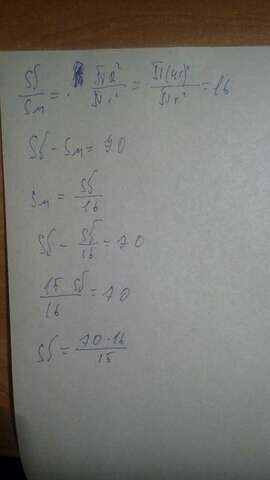 Sб/Sм = πR²/πr² = π(4r)²/πr² = 16
Sб - Sм = 70
Sм = Sб/16
Sб - Sб/16 = 70
15 Sб/16 = 70
Sб = 70·16/15